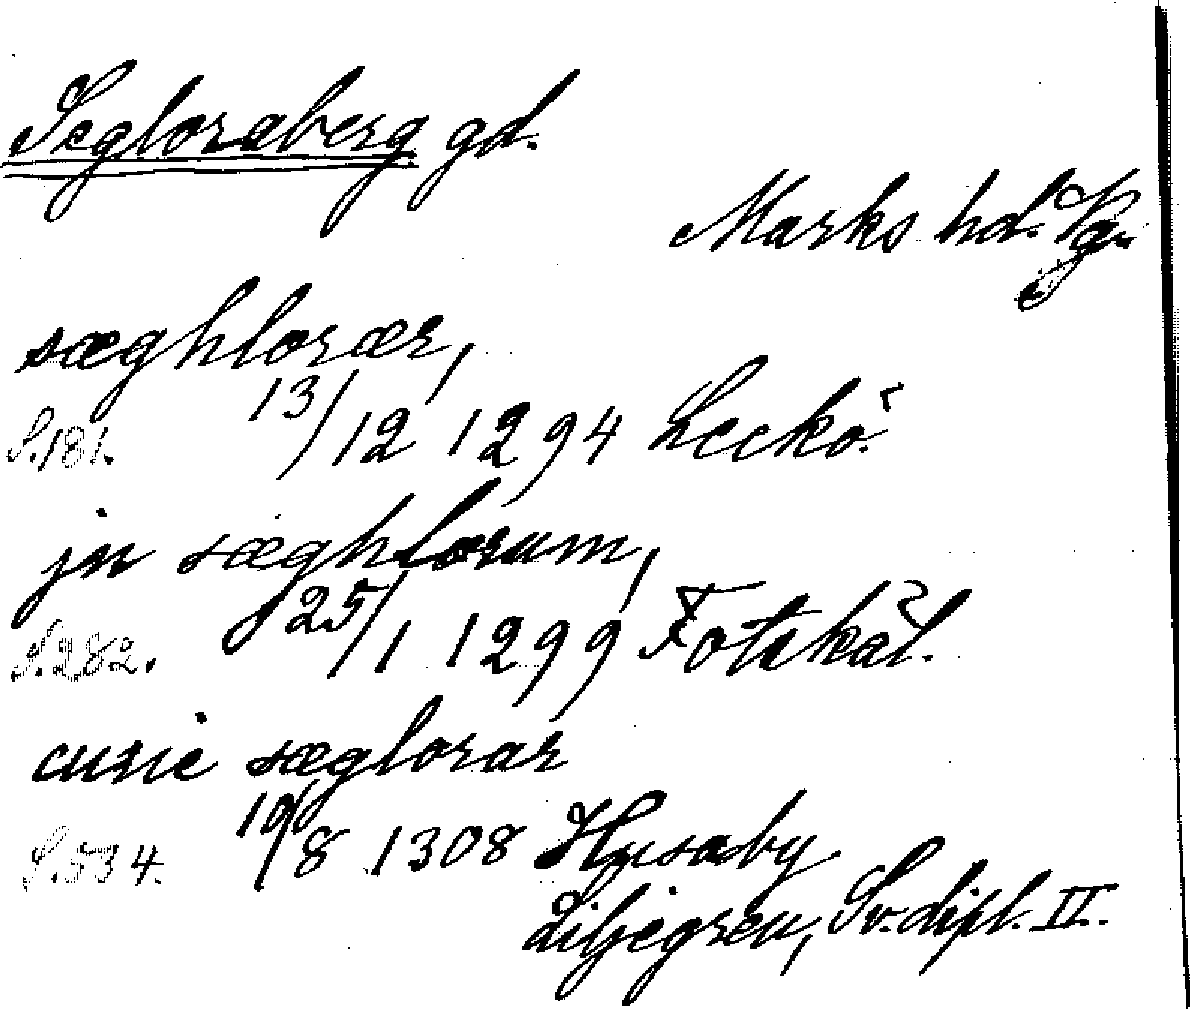 Segloraberg gd.
Marks hd. Vg.
sæghlorær,
S.181. 13/12 1294 Leckö.
jn sæghlorum,
S.282. 25/1 1299 Fotskäl.
curie sæglorar
S.534. 10/8 1308 Husaby
Liljegren, Sv. dipl. II.